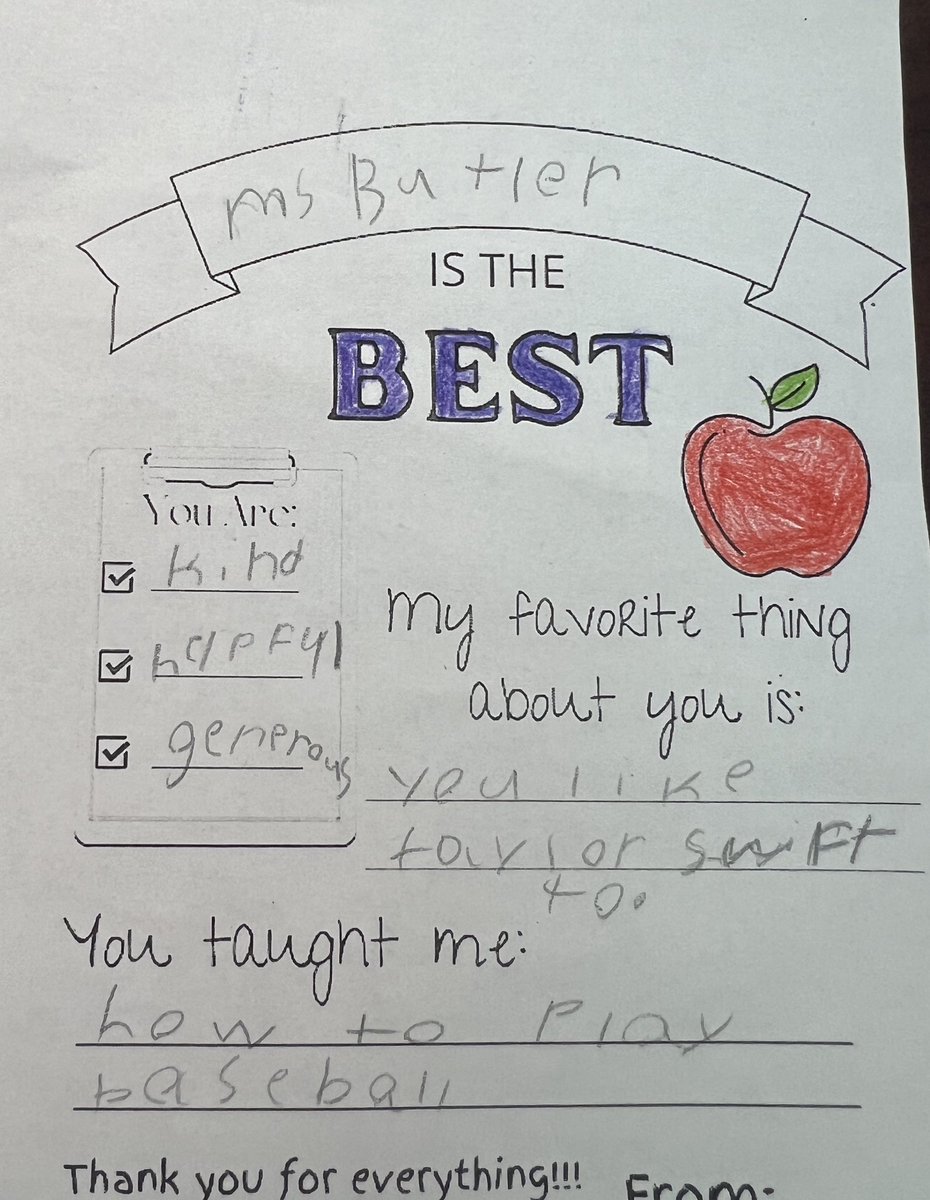 ms Butler
IS THE
BEST
You Are:
kind
helpful
generous
My favorite thing
about you is:
you like
taylor swift
to.
You taught me:
how to Play
baseball
Thank you for everything!!! From: